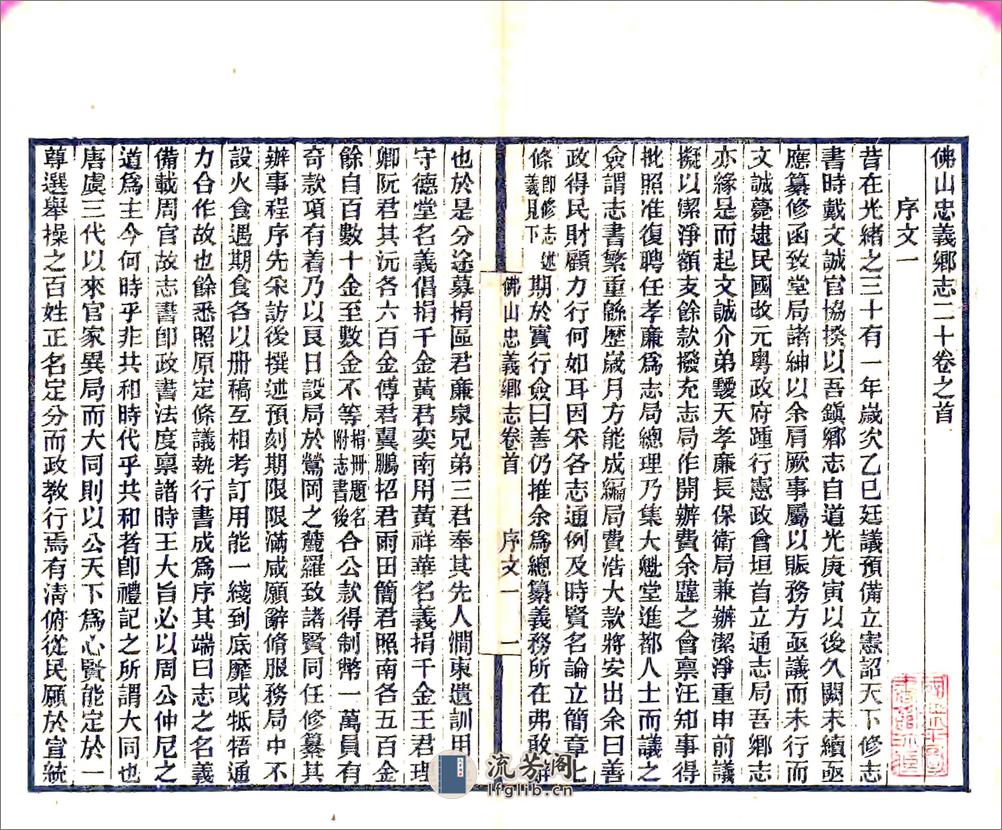 佛山忠義鄉志二十卷之首
序文一
昔在光緒之三十有一年歲次乙巳廷議預備立憲詔天下修志
書時戴文誠官協揆以吾鎭鄉志自道光庚寅以後久闕未續亟
應纂修函致堂局諸紳以余肩厥事屬以賑務方亟議而未行而
文誠薨逮民國政元粤政府踵行憲政會垣首立通志局吾鄉志
亦緣是而起文誠介弟天孝廉長保衛局兼辦潔淨重申前議
擬以潔淨額支餘款撥充志局作開辦費余韙之會禀汪知事得
批照准復聘任孝廉爲志局總理乃集大魁堂進都人士而議之
僉謂志書繁重緜歷歲月方能成編局費浩大款將安出余曰善
政得民財顧力行何如耳因采各志通例及時賢名論立簡章七
條卽修志述義見下期於實行僉曰善仍推余爲總纂義務所在弗敢辭
佛山忠義鄉志卷首 序文一 一
也於是分途募捐區君廉泉兄弟三君奉其先人澗東遺訓用
守德堂名義倡捐千金黃君奕南用黃祥華名義捐千金王君理
卿阮君其沅各六百金傅君翼鵬招君雨田簡君照南各五百金
餘自百數十金至數金不等捐冊題名附志書後合公款得制幣一萬員有
奇款項有着乃以良日設局於鶯岡之麓羅致諸賢同任修纂其
辦事程序先采訪後撰述預刻期限限滿咸願辭脩服務局中不
設火食遇期食各以册稿互相考訂用能一綫到底靡或牴牾通
力合作故也餘悉照原定條議執行書成爲序其端曰志之名義
備載周官故志書卽政書法度禀諸時王大旨必以周公仲尼之
道爲主今何時乎非共和時代乎共和者卽禮記之所謂大同也
唐虞三代以來官家異局而大同則以公天下爲心賢能定於一
尊選舉操之百姓正名定分而政教行焉有淸俯從民願於宣統
流芳閣
lfglib.cn